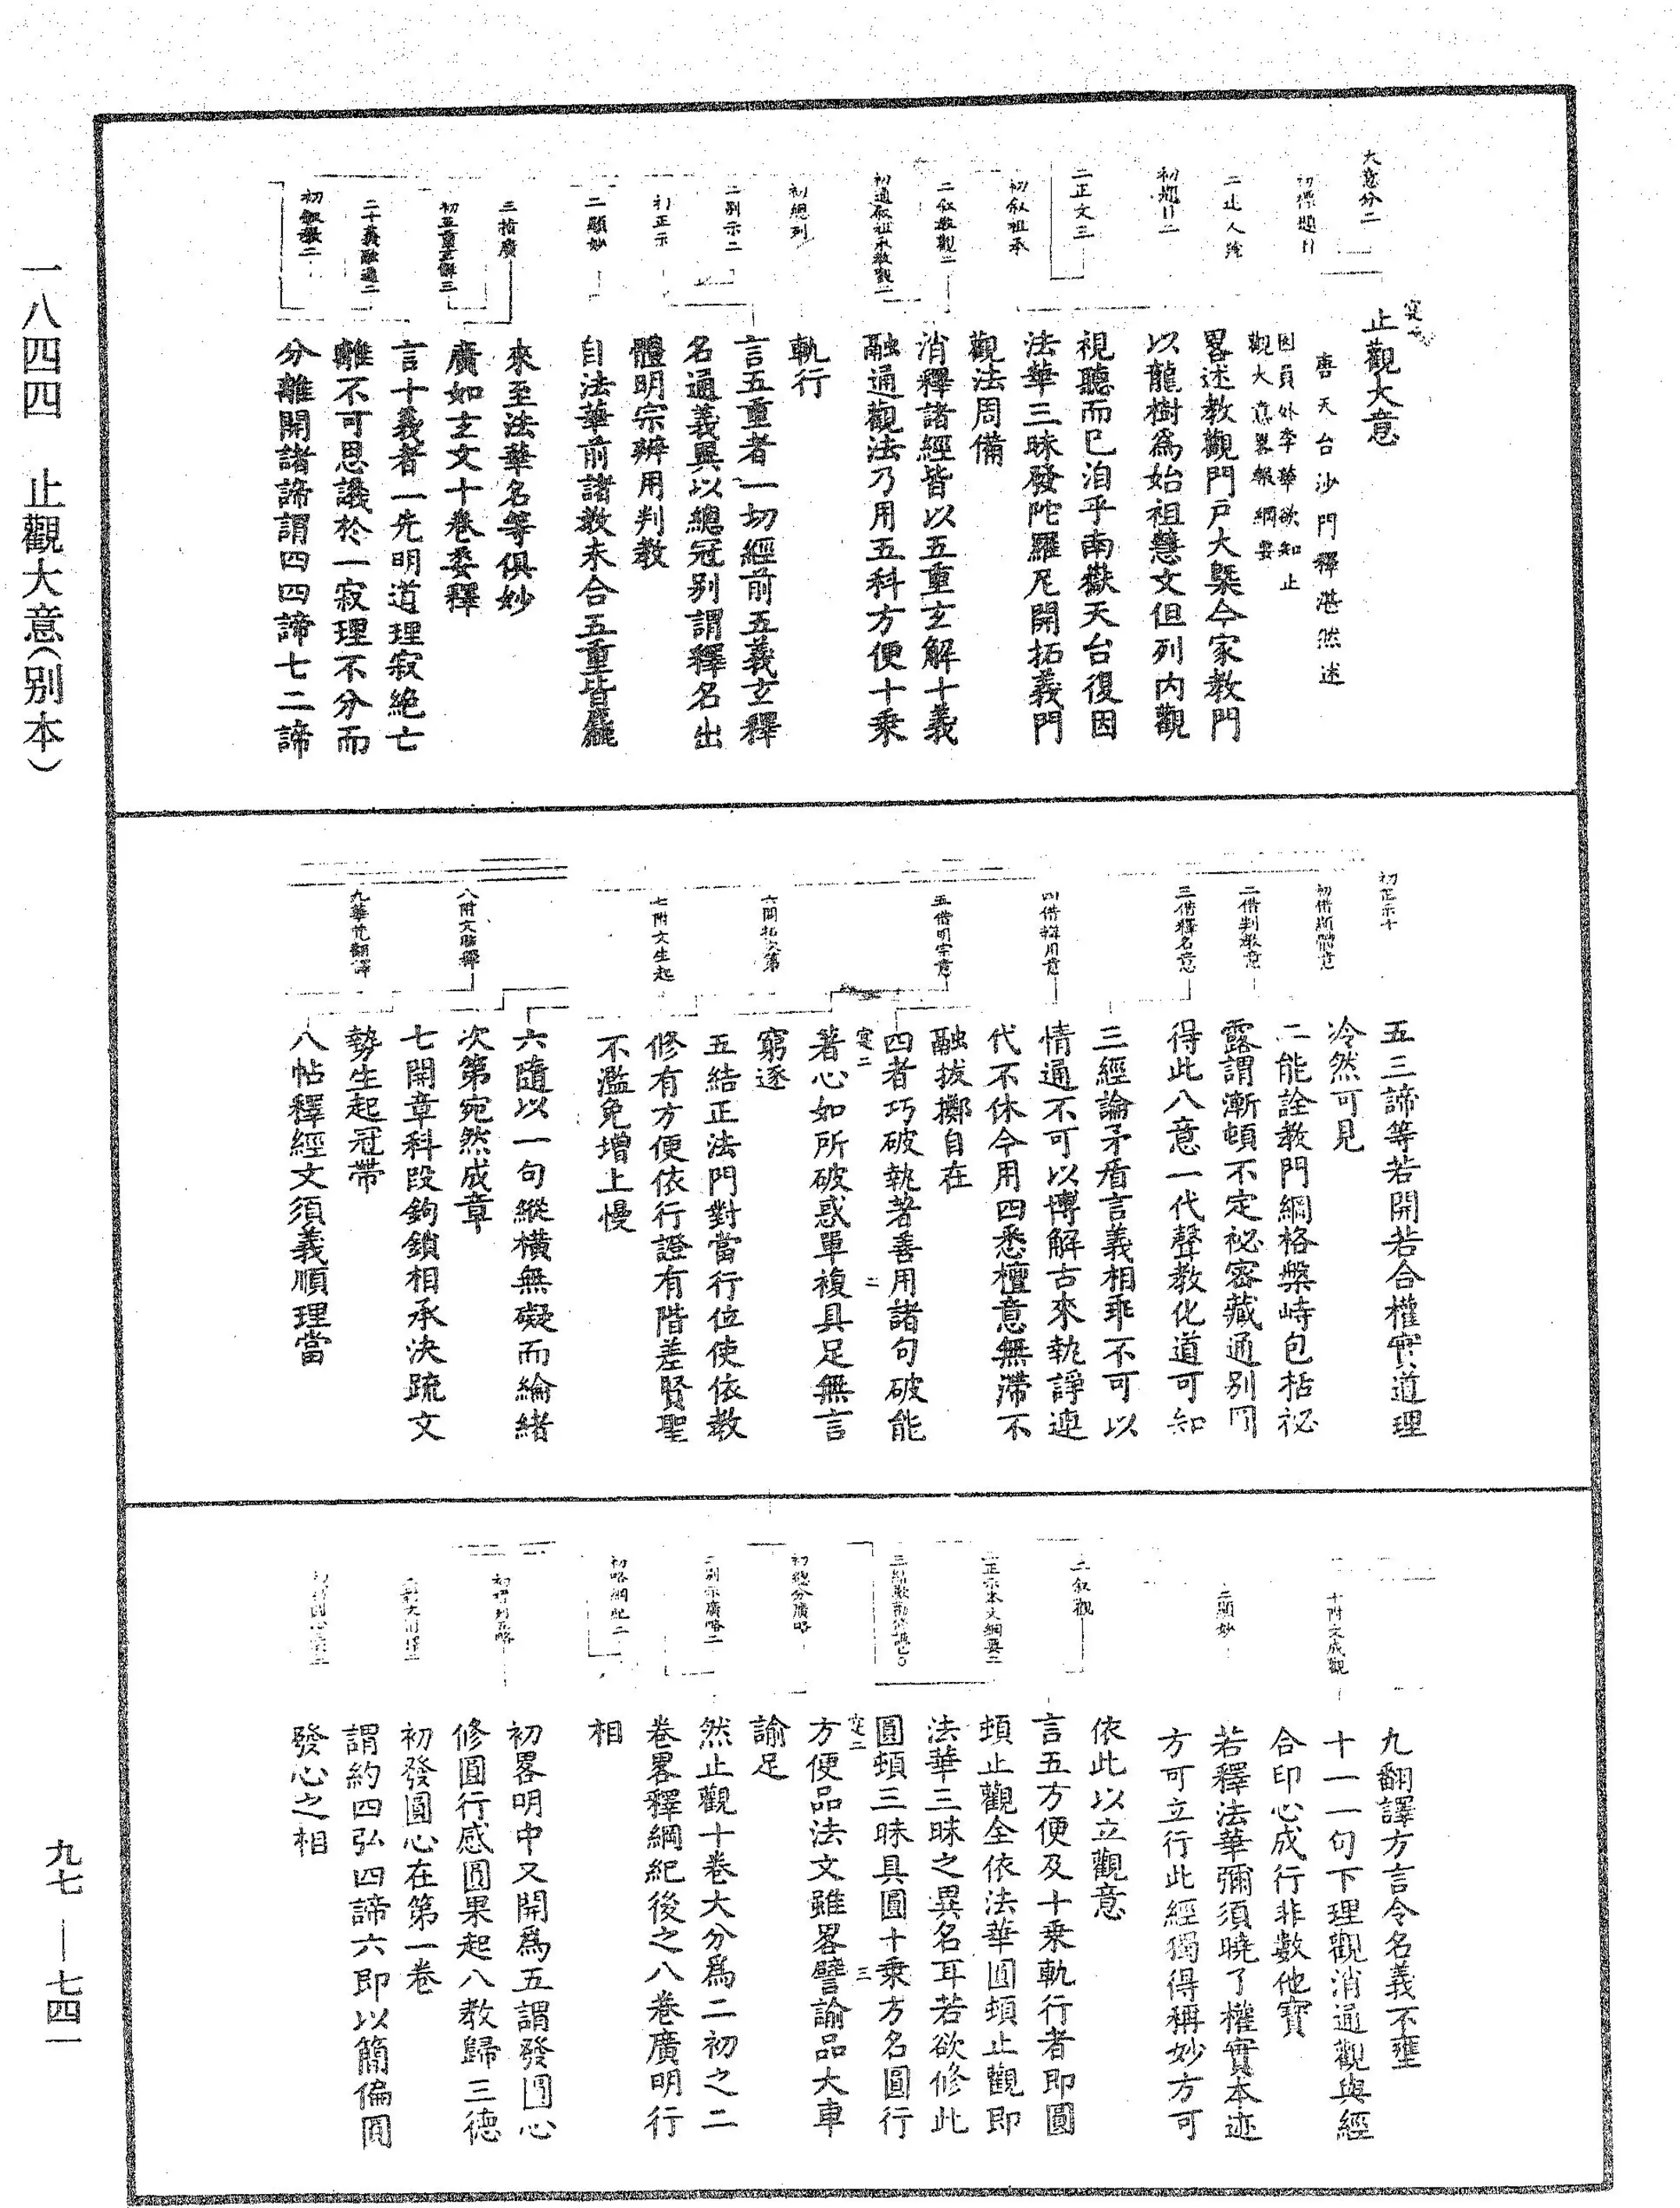 一八四四　止觀大意（別本）
大意分二
初標題目
二正人號
初題目二
二正文三
初敘祖承
二敘教觀二
初通敘祖承教觀二
初總列
二別示二
初正示
二顯妙
三指廣
初五重玄解三
二十義融通二
初敘教二
止觀大意
唐天台沙門釋湛然述
因員外李華欲知止
觀大意畧報綱要
畧述教觀門戶大槩今家教門
以龍樹爲始祖慧文但列內觀
視聽而已洎乎南嶽天台復因
法華三昧發陀羅尼開拓義門
觀法周備
消釋諸經皆以五重玄解十義
融通觀法乃用五科方便十乘
軌行
言五重者一切經前五義玄釋
名通義異以總冠別謂釋名出
體明宗辨用判教
自法華前諸教未合五重皆麤
來至法華名等俱妙
廣如玄文十卷委釋
言十義者一先明道理寂絶亡
離不可思議於一寂理不分而
分離開諸諦謂四四諦七二諦
初正示十
初借顯體意
二借判教意
三借釋名意
四借辨用意
五借明宗意
六開拓次第
七附文生起
八附文貼釋
九華梵翻譯
五三諦等若開若合權實道理
冷然可見
二能詮教門綱格槃峙包括祕
露謂漸頓不定祕密藏通別圓
得此八意一代聲教化道可知
三經論矛盾言義相乖不可以
情通不可以博解古來執諍連
代不休今用四悉檀意無滯不
融拔擲自在
四者巧破執著善用諸句破能
著心如所破惑單複具足無言
窮逐
五結正法門對當行位使依教
修有方便依行證有階差賢聖
不濫免增上慢
六隨以一句縱橫無礙而綸緒
次第宛然成章
七開章科段鉤鎖相承決疏文
勢生起冠帶
八帖釋經文須義順理當
十附文成觀
二顯妙
二敘觀
二正示本文綱要二
初總分廣略
二別示廣略二
初略綱紀二
九翻譯方言令名義不壅
十一一句下理觀消通觀與經
合印心成行非數他寶
若釋法華彌須曉了權實本迹
方可立行此經獨得稱妙方可
依此以立觀意
言五方便及十乘軌行者即圓
頓止觀全依法華圓頓止觀即
法華三昧之異名耳若欲修此
圓頓三昧具圓十乘方名圓行
方便品法文雖畧譬諭品大車
諭足
然止觀十卷大分爲二初之二
卷畧釋綱紀後之八卷廣明行
相
初畧明中又開爲五謂發圓心
修圓行感圓果起八教歸三德
初發圓心在第一卷
謂約四弘四諦六即以簡偏圓
發心之相
九七—七四一